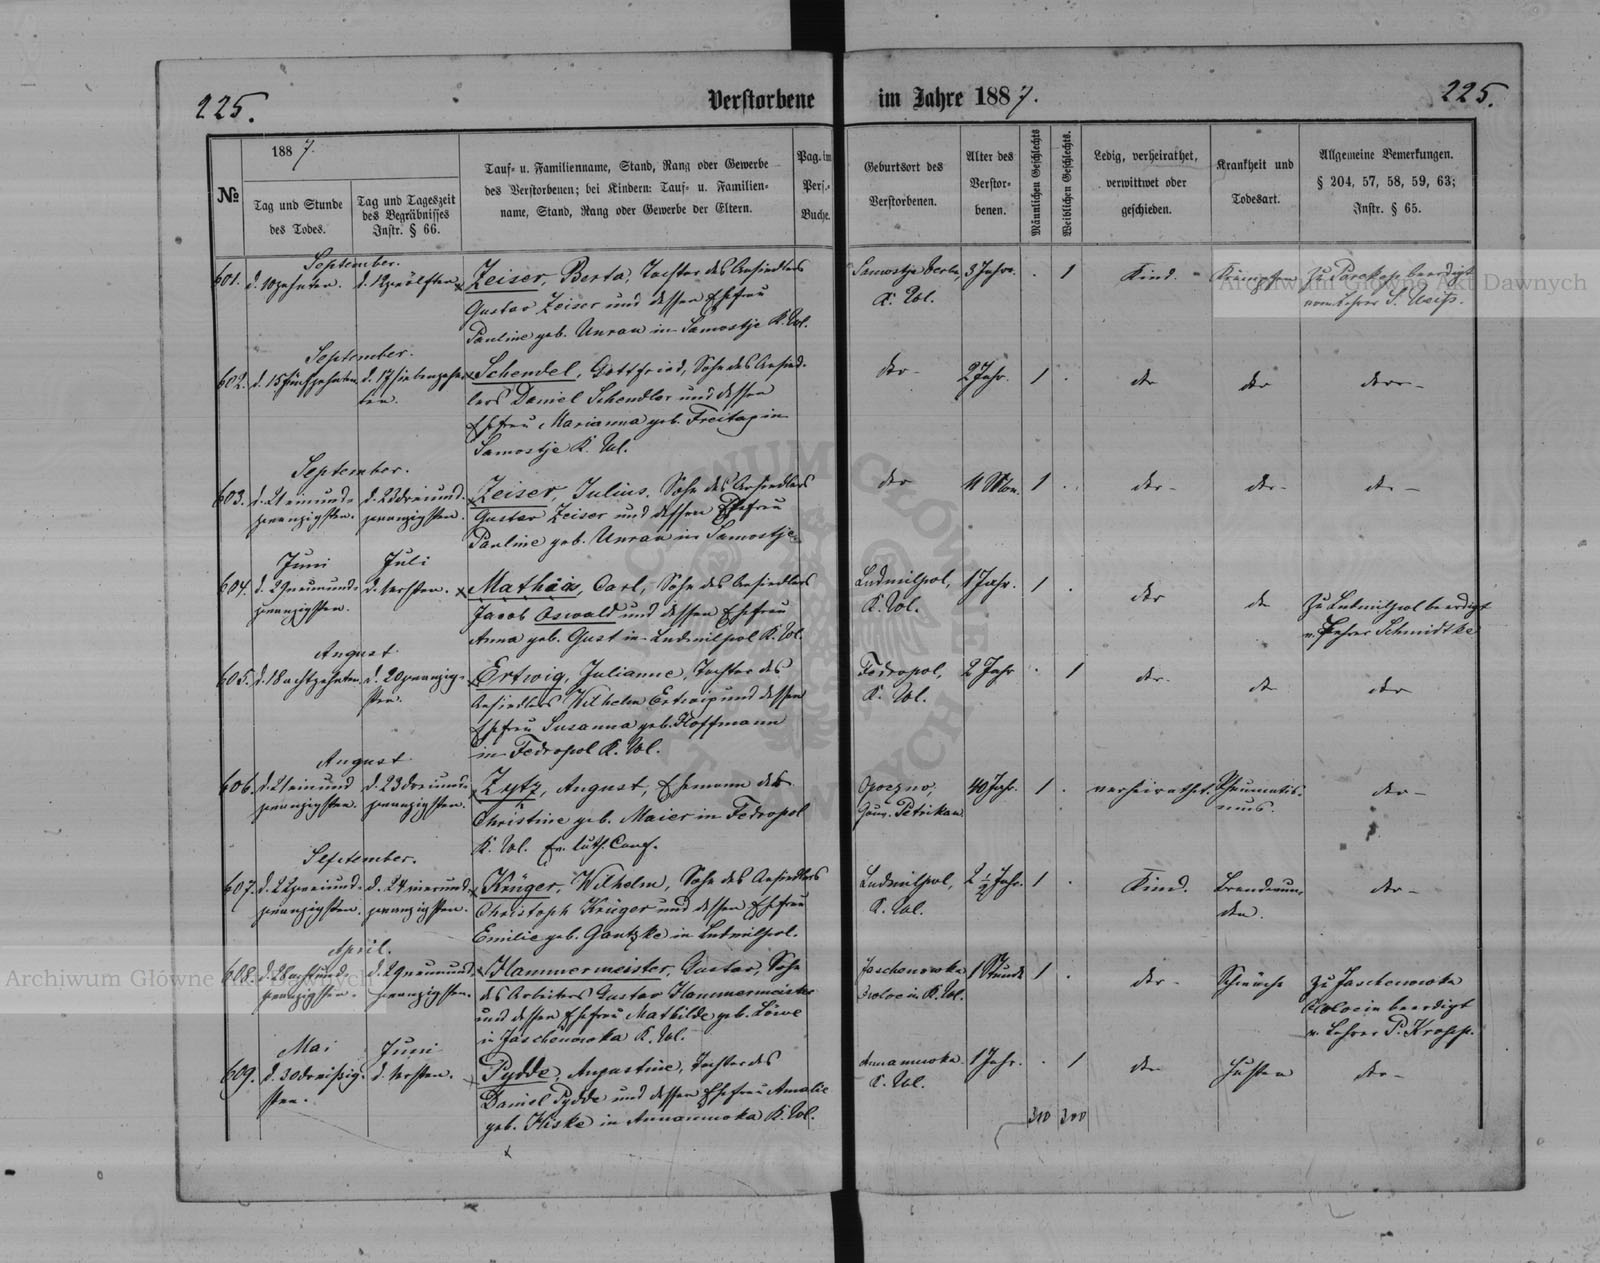 225.
Verstorbene
im Jahre 1887.
225.
№
1887.
Tag und Stunde
des Todes.
Tag und Tageszeit
des Begräbnisses
Instr. § 66.
Tauf- u. Familienname, Stand, Rang oder Gewerbe
des Verstorbenen; bei Kindern: Tauf- u. Familien-
name, Stand, Rang oder Gewerbe der Eltern.
Pag. im
Pers.-
Buche.
Geburtsort des
Verstorbenen.
Alter des
Verstor-
benen.
Männlichen Geschlechts
Weiblichen Geschlechts.
Ledig, verheirathet,
verwittwet oder
geschieden.
Krankheit und
Todesart.
Allgemeine Bemerkungen.
§ 204, 57, 58, 59, 63;
Instr. § 65.
September.
601. d. 10 zehnten. d. 12 zwölften. Zeiser, Berta, Tochter des Ansiedlers
Gustav Zeiser und dessen Ehefrau
Pauline geb. Unrau in Samostje K. Wl.
Samostje
K. Wl.
3 Jahre. 1 Kind. Krämpfen
Zu beerdigt
vom Lehrer
September.
602. d. 15 fünfzehnten d. 17 siebenzehn-
ten.
Schendel, Gottfried, Sohn des Ansied-
lers Daniel Schendler und dessen
Ehefrau Marianna geb. Freitag in
Samostje K. Wl.
der 2 Jahr. 1 der der der
September.
603. d. 21 einund-
zwanzigsten.
d. 23 dreiund-
zwanzigsten.
Zeiser, Julius, Sohn des Ansiedlers
Gustav Zeiser und dessen Ehefrau
Pauline geb. Unrau in Samostje.
der 11 Mon. 1 der der der
Juni Juli
604. d. 29 neunund-
zwanzigsten.
d. 1 ersten.
Mathäis, Carl, Sohn des Ansiedlers
Jacob Oswald und dessen Ehefrau
Anna geb. Gust in Ludmilpol K. Wl.
Ludmilpol,
K. Wl.
1 Jahr. 1 der der
Zu Ludmilpol beerdigt
v. Lehrer Schmidtke
August
605. d. 18 achtzehnten d. 20 zwanzig-
sten.
Ertwig, Julianne, Tochter des
Ansiedlers Wilhelm Ertwig und dessen
Ehefrau Susanna geb. Hoffmann
in Fedropol K. Wl.
Fedropol,
K. Wl.
2 Jahr 1 der der der
August
606. d. 21 einund
zwanzigsten.
d. 23 dreiund-
zwanzigsten.
Zytz, August, Ehemann des
Christine geb. Maier in Fedropol
K. Wl. Ev. luth. Conf.
Opoczno,
Gouv. Petrikau
40 Jahr. 1 verheirathet. Rheumatis-
mus.
der
September.
607. d. 22 zweiund-
zwanzigsten.
d. 24 vierund-
zwanzigsten.
Krüger, Wilhelm, Sohn des Ansiedlers
Christoph Krüger und dessen Ehefrau
Emilie geb. Gantzke in Ludmilpol.
Ludmilpol,
K. Wl.
2 ½ Jahr. 1 Kind. Brandwun-
den.
der
April.
608. d. 28 achtund-
zwanzigsten.
d. 29 neunund-
zwanzigsten.
Hammermeister, Gustav, Sohn
des Arbeiters Gustav Hammermeister
und dessen Ehefrau Mathilde geb. Löwe
in Jaschenowka K. Wl.
Jaschenowka
K. Wl.
1 Stunde 1 der Schwäche
Zu Jaschenowka
beerdigt
v. Lehrer P. Kropp.
Mai Juni
609. d. 30 dreißig-
sten.
d. 1 ersten.
Pydde, Augustine, Tochter des
Daniel Pydde und dessen Ehefrau Amalie
geb. Kiske in Annanuwka K. Wl.
Annanuwka
K. Wl.
1 Jahr. 1 der Husten der
310 300
Archiwum Główne Akt Dawnych
Archiwum Główne Akt Dawnych